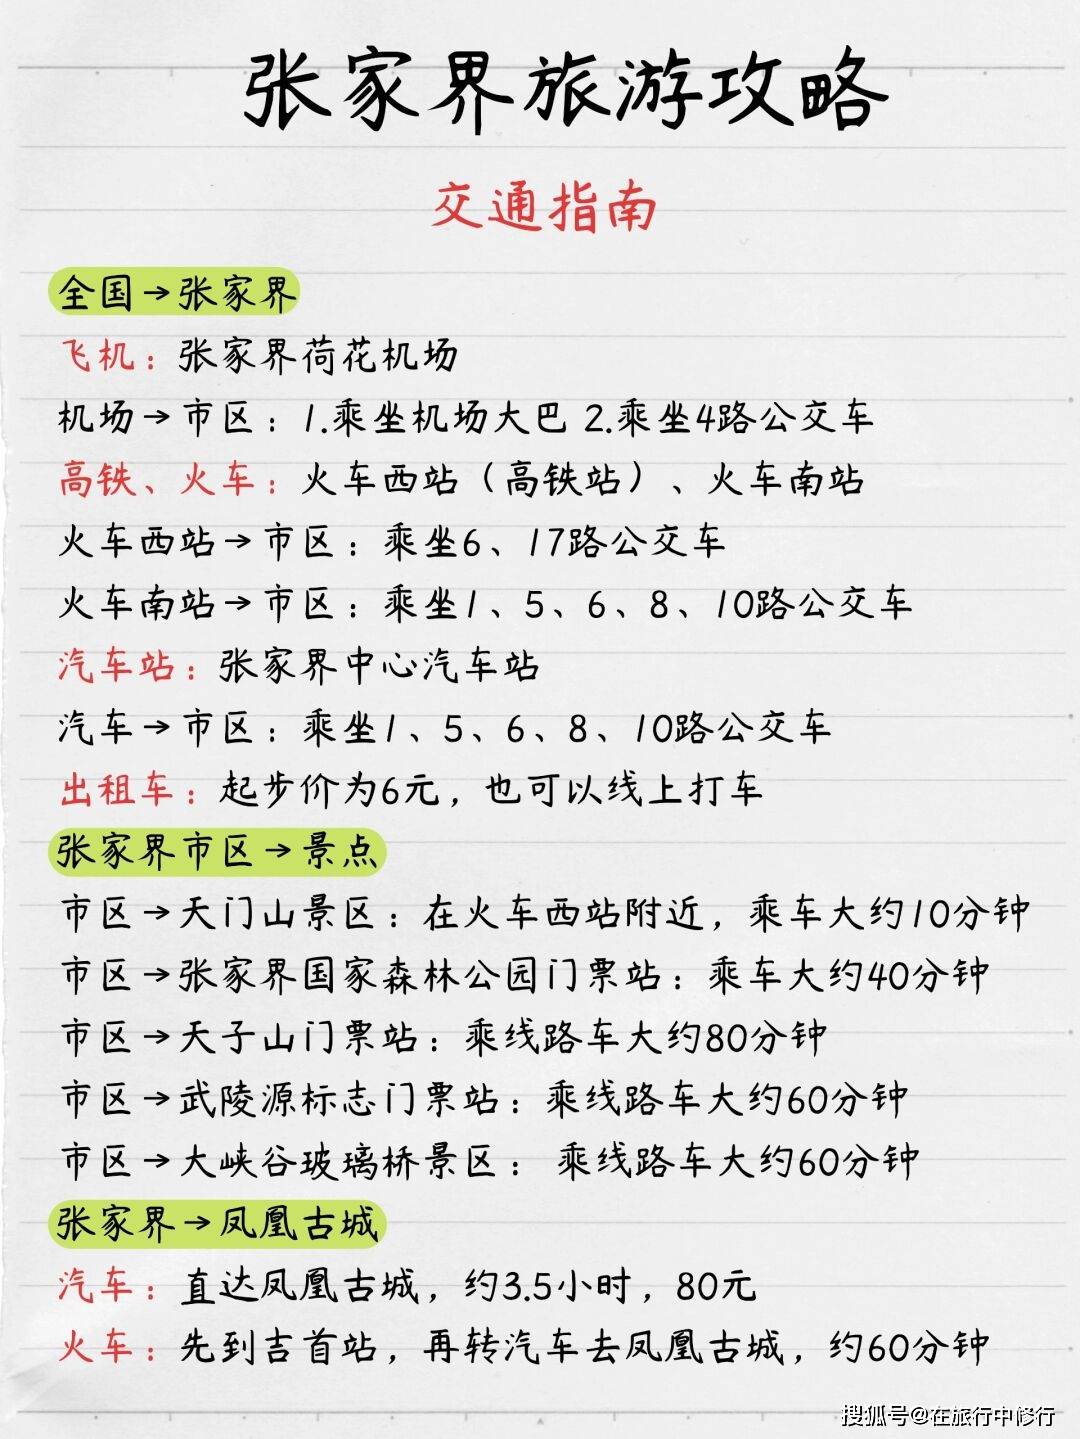 张家界旅游攻略
交通指南
全国→张家界
飞机：张家界荷花机场
机场→市区：1.乘坐机场大巴 2.乘坐4路公交车
高铁、火车：火车西站（高铁站）、火车南站
火车西站→市区：乘坐6、17路公交车
火车南站→市区：乘坐1、5、6、8、10路公交车
汽车站：张家界中心汽车站
汽车→市区：乘坐1、5、6、8、10路公交车
出租车：起步价为6元，也可以线上打车
张家界市区→景点
市区→天门山景区：在火车西站附近，乘车大约10分钟
市区→张家界国家森林公园门票站：乘车大约40分钟
市区→天子山门票站：乘线路车大约80分钟
市区→武陵源标志门票站：乘线路车大约60分钟
市区→大峡谷玻璃桥景区： 乘线路车大约60分钟
张家界→凤凰古城
汽车：直达凤凰古城，约3.5小时，80元
火车：先到吉首站，再转汽车去凤凰古城，约60分钟
搜狐号@在旅行中修行